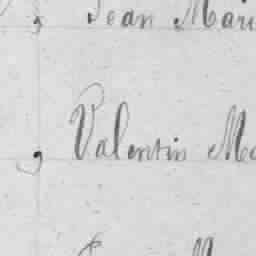 , Jean Mari
, Valentin Ma